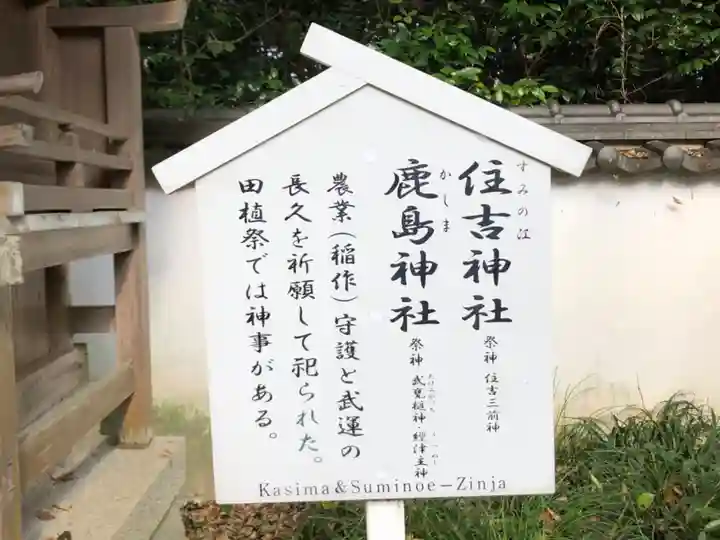 すみの江
住吉神社
祭神 住吉三前神
かしま
鹿島神社
祭神 武甕槌神・經津主神
農業(稲作)守護と武運の
長久を祈願して祀られた。
田植祭では神事がある。
Kasima&Suminoe－Zinja